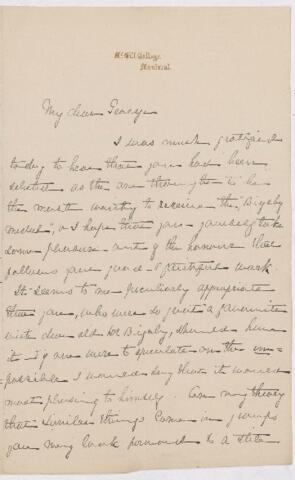 McGill College,
Montreal.
My dear George
I was much gratified
today to hear that you had been
selected as the one thought to be
the most worthy to receive the Bigsby
medal; & I hope that you yourself take
some pleasure out of the honours that
follow your good & faithful work.
It seems to me peculiarly appropriate
that you, who were so great a favourite
with dear old Dr Bigsby, should have
it & if one were to speculate on the un-
possible I would say that it would be
most pleasing to himself. On my theory
that similar things come in groups
you may look forward to a